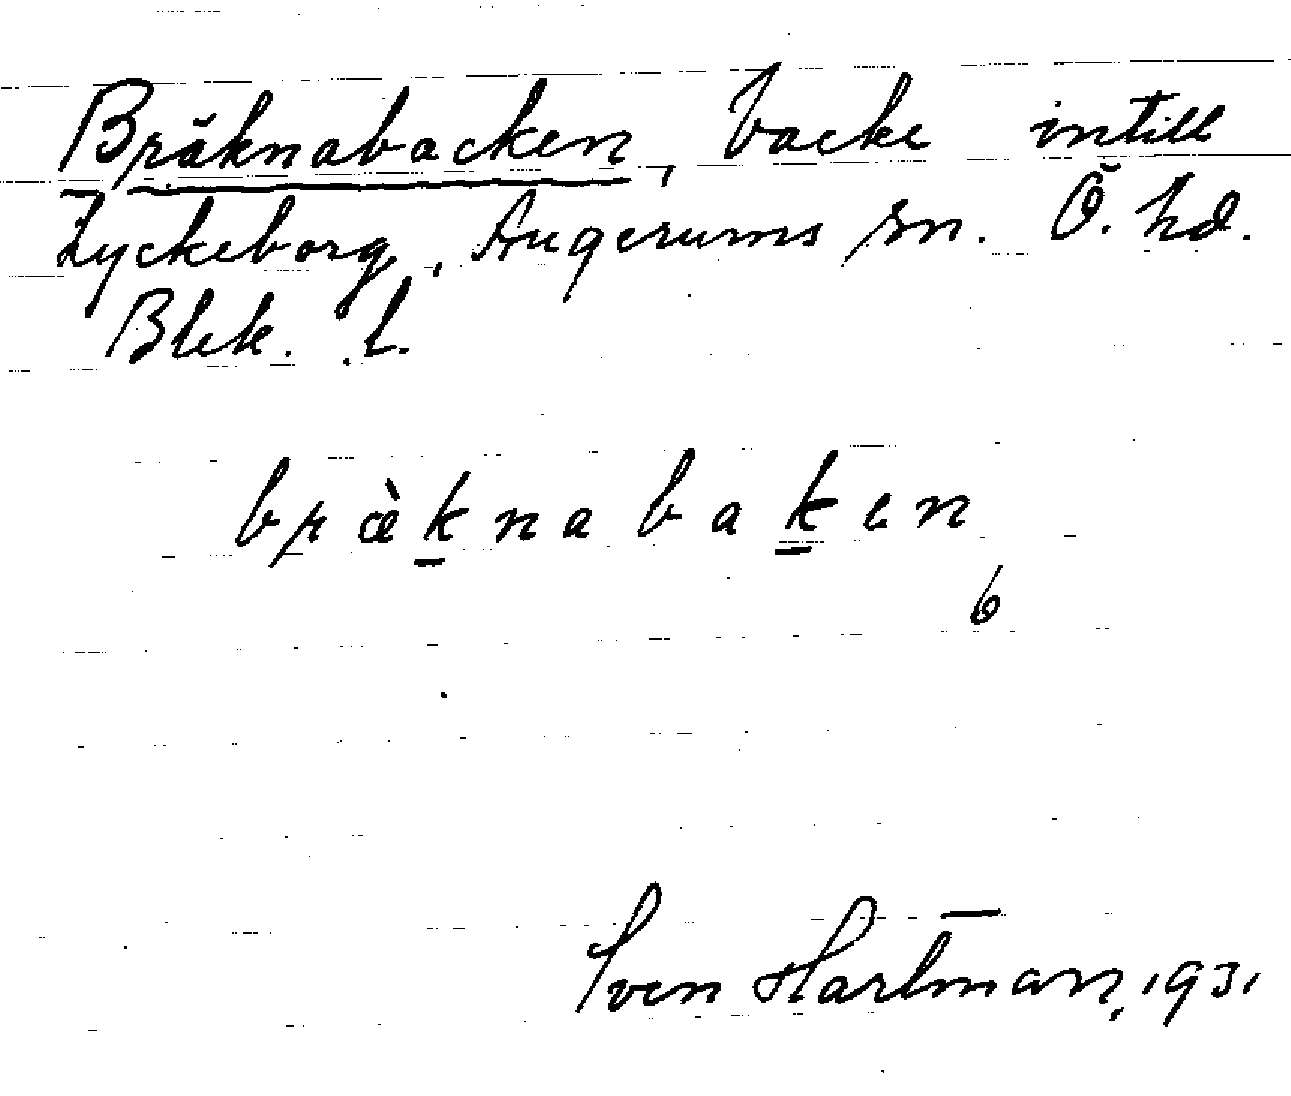 Bräknabacken, backe intill
Lyckeborg, Augerums sn. Ö. hd.
Blek. l.
bræ̀knabaken
6
Sven Hartman, 1931